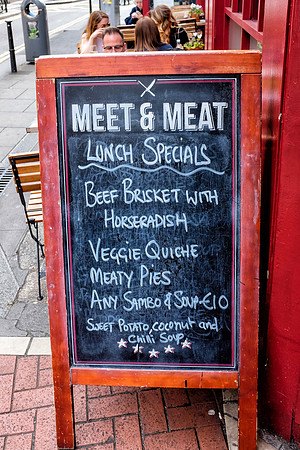 MEET & MEAT
LUNCH SPECIALS
BEEF BRISKET WITH
HORSERADISH
VEGGIE QUICHE
MEATY PIES
ANY SAMBO & SOUP-€10
SWEET POTATO, COCONUT AND
CHILLI SOUP